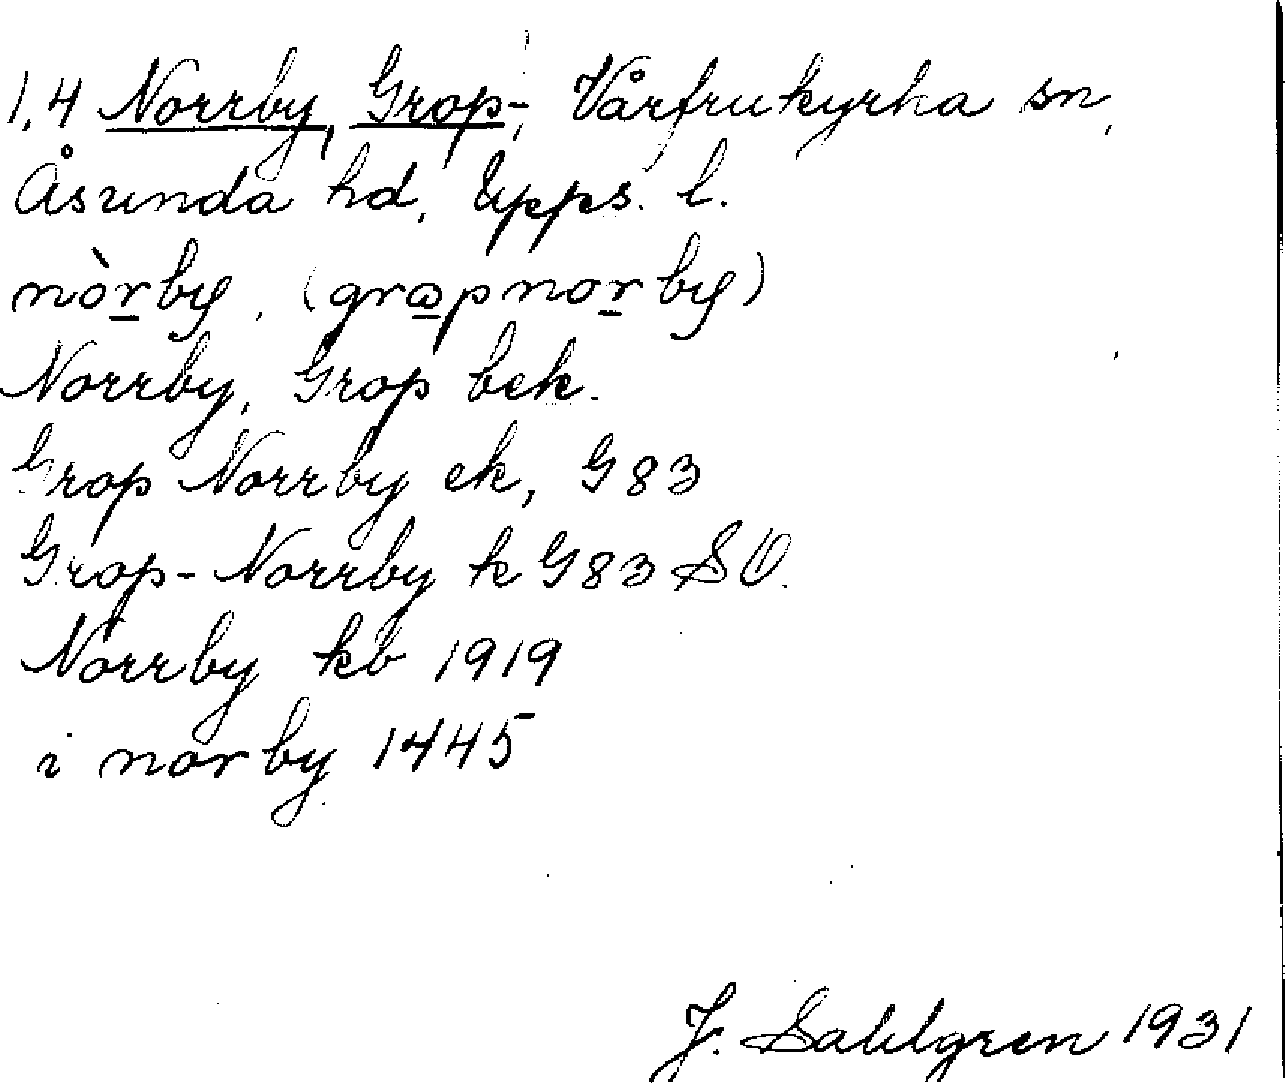 1,4 Norrby, Grop-, Vårfrukyrka sn,
Åsunda hd, Upps. l.
nòrby. (grɷpnorby)
Norrby, Grop bek.
Grop Norrby ek, G 83
Grop-Norrby k G 83 SO.
Norrby kb 1919
i norby 1445
J. Sahlgren 1931